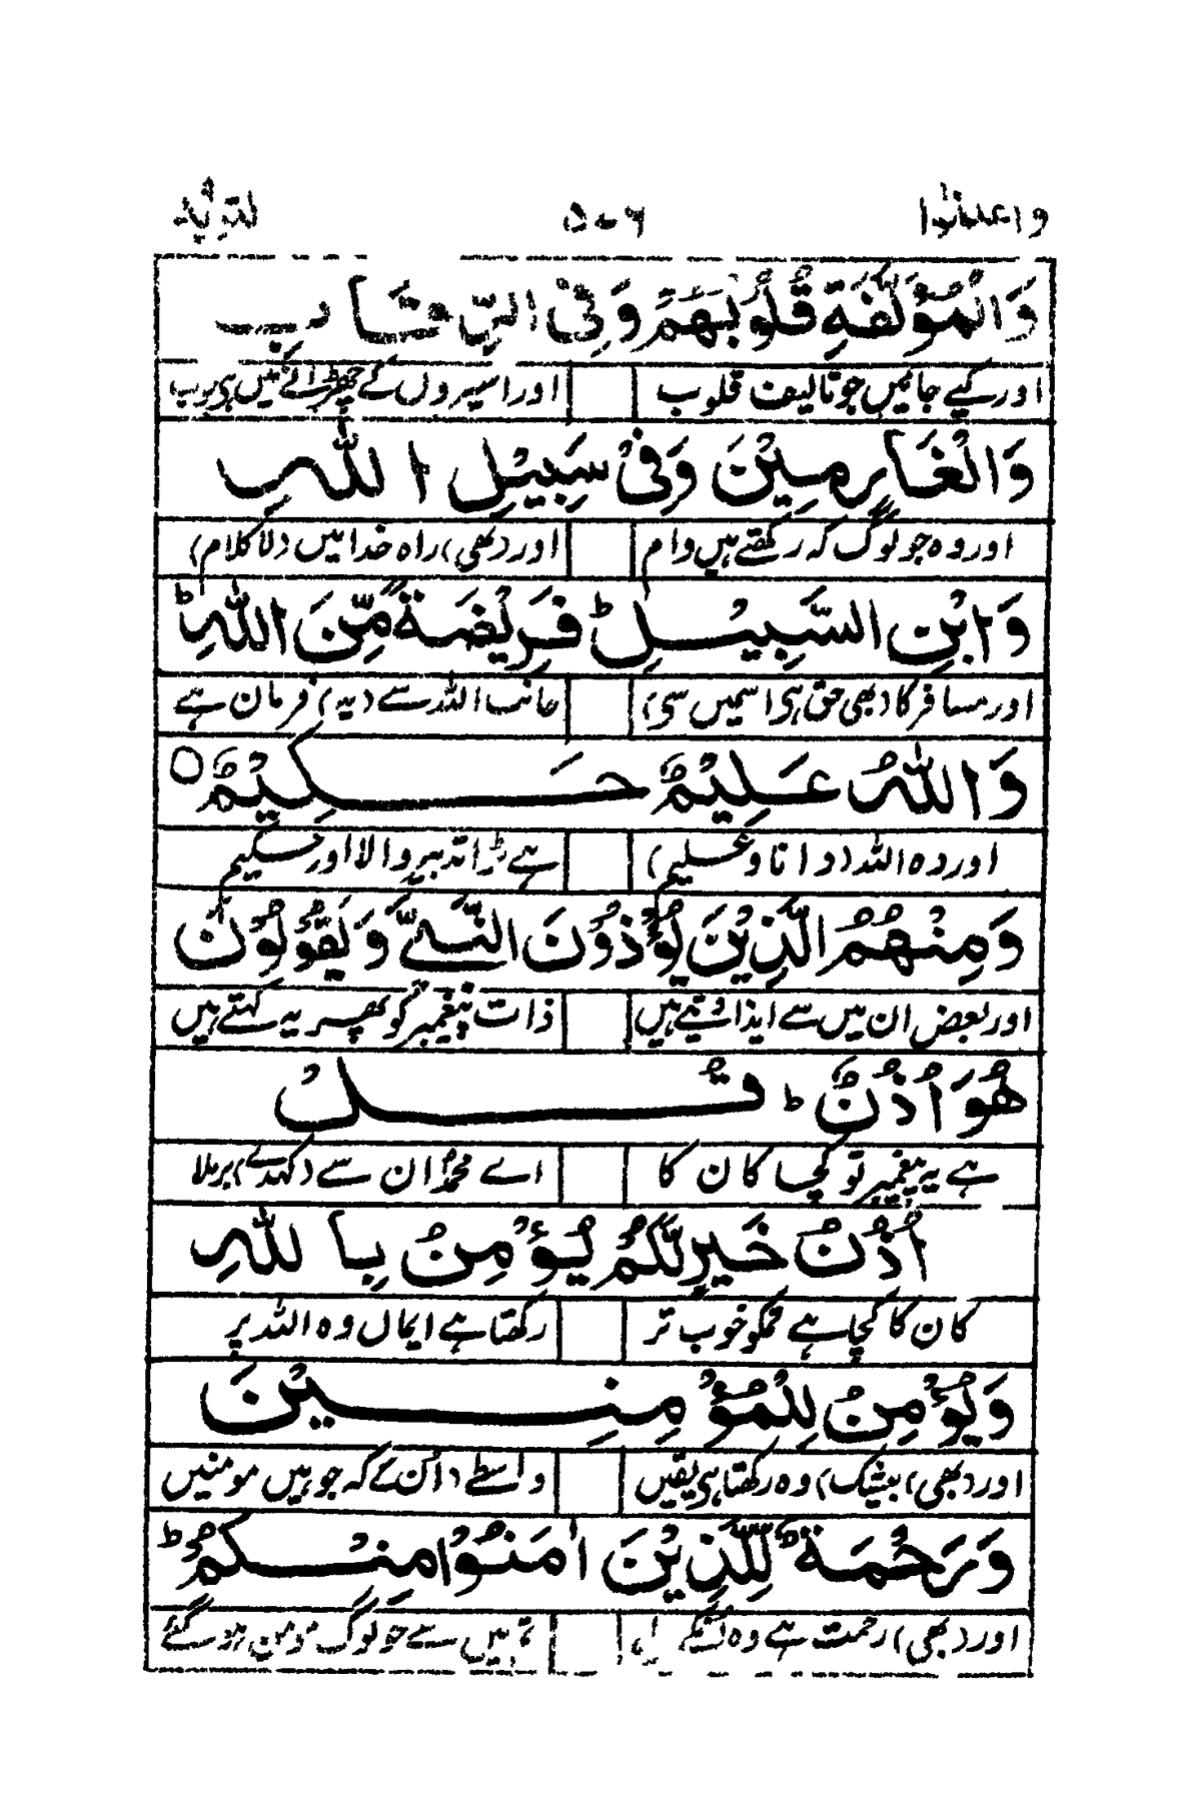 واعلموا ۵۰۶ التوبۃ
وَالْمُؤَلَّفَةِ قُلُوْبُهُمْ وَفِی الرِّقَابِ
اور کیے جائیں جو تالیف قلوب اور اسیروں کے چھڑانے میں ہی
وَالْغَارِمِيْنَ وَفِیْ سَبِيْلِ اللّٰهِ
اور وہ جو لوگ کہ رکھتے ہیں وام اور (بھی) راہ خدا میں (لا کلام)
وَابْنِ السَّبِيْلِ ؕ فَرِيْضَةً مِّنَ اللّٰهِ ؕ
اور مسافر کا (بھی حق ہی اسمیں سی) جانب اللہ سے (یہ) فرمان ہے
وَاللّٰهُ عَلِيْمٌ حَكِيْمٌ ○
اور وہ اللہ (دانا و علیم) ہے بڑا تدبیر والا اور حکیم
وَمِنْهُمُ الَّذِيْنَ يُؤْذُوْنَ النَّبِیَّ وَيَقُوْلُوْنَ
اور بعض ان میں سے ایذا دیتے ہیں ذات پیغمبر کو پھر یہ کہتے ہیں
هُوَ اُذُنٌ ؕ قُلْ
ہے یہ پیغمبر تو کچا کان کا اے محمدؐ ان سے (کہدے) برملا
اُذُنُ خَيْرٍ لَّكُمْ يُؤْمِنُ بِاللّٰهِ
کان کا کچا ہے تمکو خوب تر رکھتا ہے ایماں وہ اللہ پر
وَيُؤْمِنُ لِلْمُؤْمِنِيْنَ
اور (بھی) بیشک) وہ رکھتا ہی یقیں واسطے (اُن کے کہ جو ہیں مومنیں
وَرَحْمَةٌ لِّلَّذِيْنَ اٰمَنُوْا مِنْكُمْ ؕ
اور (بھی) رحمت ہے وہ تم میں سے جو لوگ مومن ہو گئے